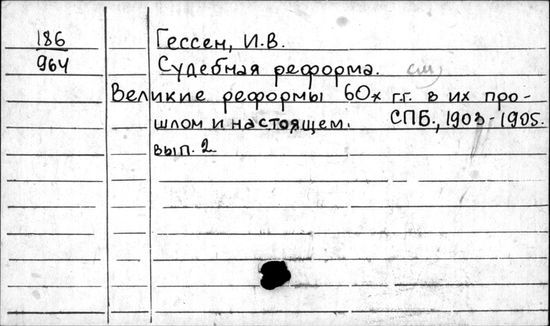 186
964
Гессен, И.В.
Судебная реформа. см
Великие реформы 60х г.г. в их про-
шлом и настоящем. СПБ., 1903-1905.
вып. 2